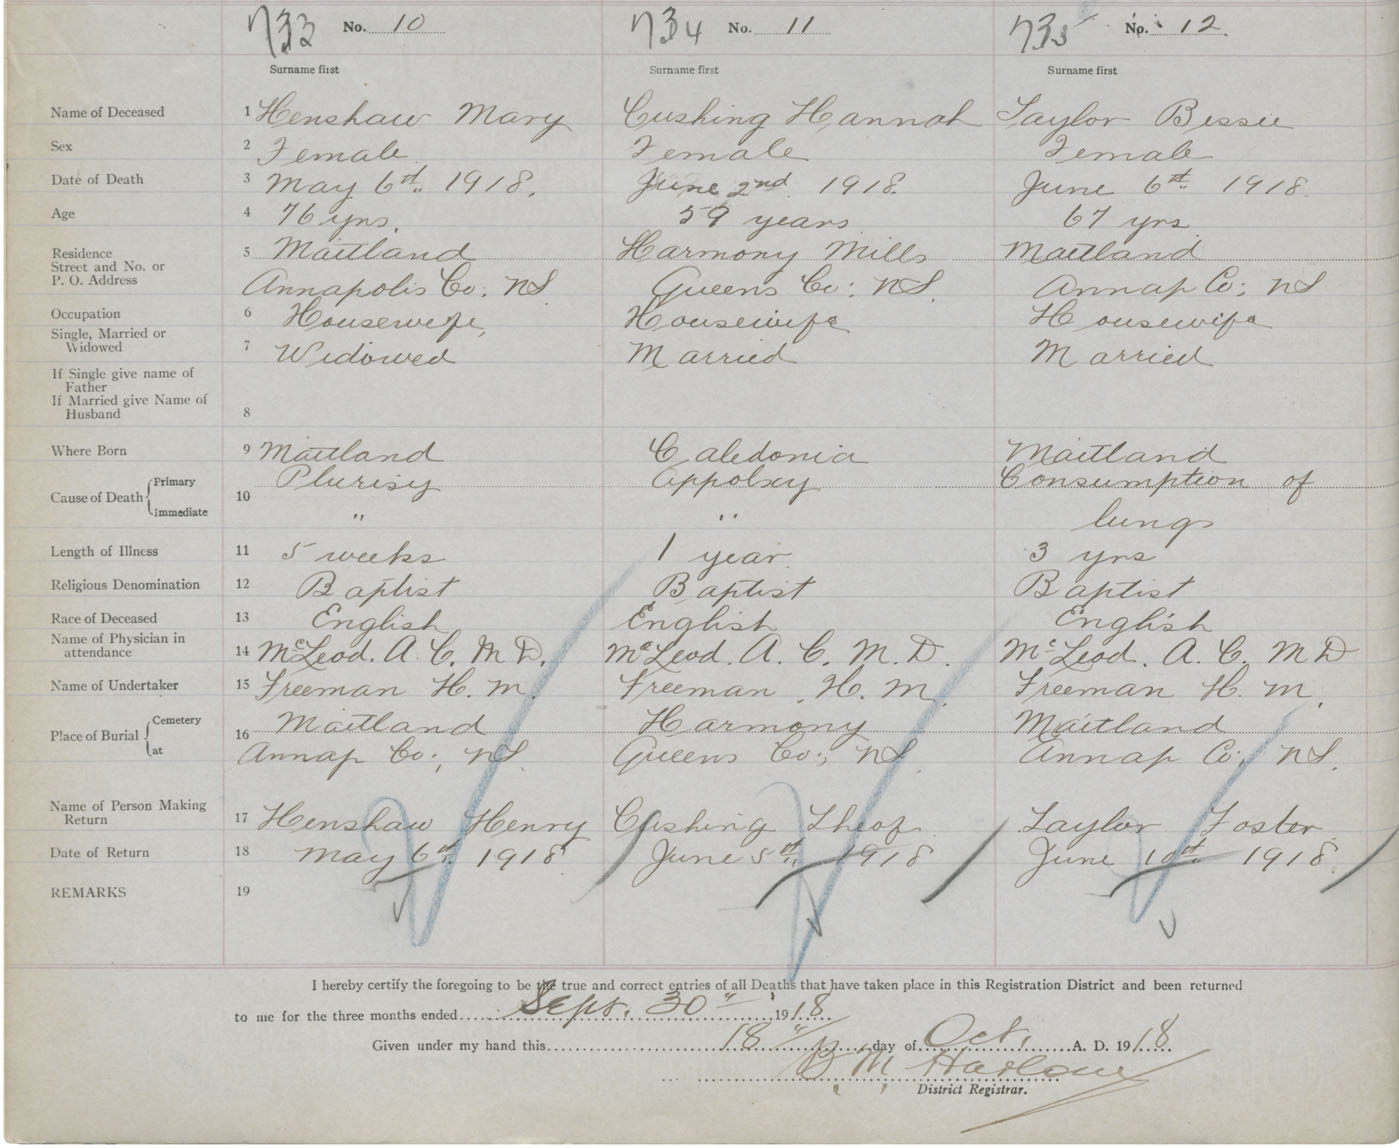 733 No. 10 734 No. 11 735 No. 12
Surname first Surname first Surname first
Name of Deceased 1 Henshaw Mary Cushing Hannah Taylor Bessie
Sex 2 Female Female Female
Date of Death 3 May 6th. 1918. June 2nd 1918. June 6th. 1918.
Age 4 76 yrs. 59 years 67 yrs
Residence 5 Maitland Harmony Mills Maitland
Street and No. or
P. O. Address Annapolis Co; NS Queens Co: NS. Annap Co; NS
Occupation 6 Housewife, Housewife Housewife
Single, Married or
Widowed 7 Widowed Married Married
If Single give name of
Father
If Married give Name of
Husband 8
Where Born 9 Maitland Caledonia Maitland
Cause of Death Primary 10 Plurisy Appolxy Consumption of
Immediate " " lungs
Length of Illness 11 5 weeks 1 year. 3 yrs
Religious Denomination 12 Baptist Baptist Baptist
Race of Deceased 13 English English English
Name of Physician in
attendance 14 McLeod. A. C. M D. McLeod. A. C. M. D. McLeod. A. C. M D
Name of Undertaker 15 Freeman H. M. Freeman H. M. Freeman H. M.
Place of Burial Cemetery 16 Maitland Harmony Maitland
at Annap Co:, NS. Queens Co:, NS. Annap Co; NS.
Name of Person Making
Return 17 Henshaw Henry Cushing Theop. Taylor Foster
Date of Return 18 May 6th. 1918 June 5th. 1918 June 10th. 1918.
REMARKS 19
I hereby certify the foregoing to be the true and correct entries of all Deaths that have taken place in this Registration District and been returned
to me for the three months ended Sept. 30" 1918.
Given under my hand this 18" day of Oct. A. D. 1918
B. M. Harlow
District Registrar.